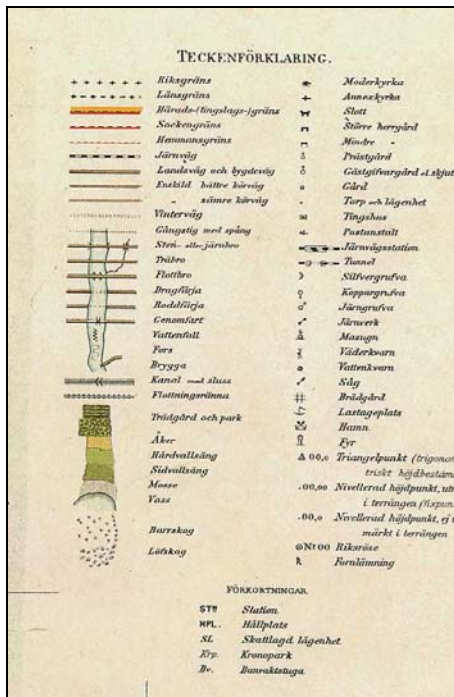 TECKENFÖRKLARING.
Riksgräns
Länsgräns
Härads-(tingslags-)gräns
Sockengräns
Hemmansgräns
Järnväg
Landsväg och bygdeväg
Enskild bättre körväg
„ sämre körväg
Vinterväg
Gångstig med spång
Sten- eller järnbro
Träbro
Flottbro
Dragfärja
Roddfärja
Genomfart
Vattenfall
Fors
Brygga
Kanal med sluss
Flottningsränna
Trädgård och park
Åker
Hårdvallsäng
Sidvallsäng
Mosse
Vass
Barrskog
Löfskog
Moderkyrka
Annexkyrka
Slott
Större herrgård
Mindre „
Prästgård
Gästgifvargård el. skjut
Gård
Torp och lägenhet
Tingshus
Postanstalt
Järnvägsstation
Tunnel
Silfvergrufva
Koppargrufva
Järngrufva
Järnverk
Masugn
Väderkvarn
Vattenkvarn
Såg
Brädgård
Lastageplats
Hamn
Fyr
00,0 Triangelpunkt (trigonom
triskt höjdbestäm
.00,00 Nivellerad höjdpunkt, utm
i terrängen (fixpun
.00,0 Nivellerad höjdpunkt, ej u
märkt i terrängen
Nr 00 Riksröse
R Fornlämning
FÖRKORTNINGAR.
STN Station
HPL. Hållplats
SL Skattlagd lägenhet
Krp. Kronopark
Bv. Banvaktstuga